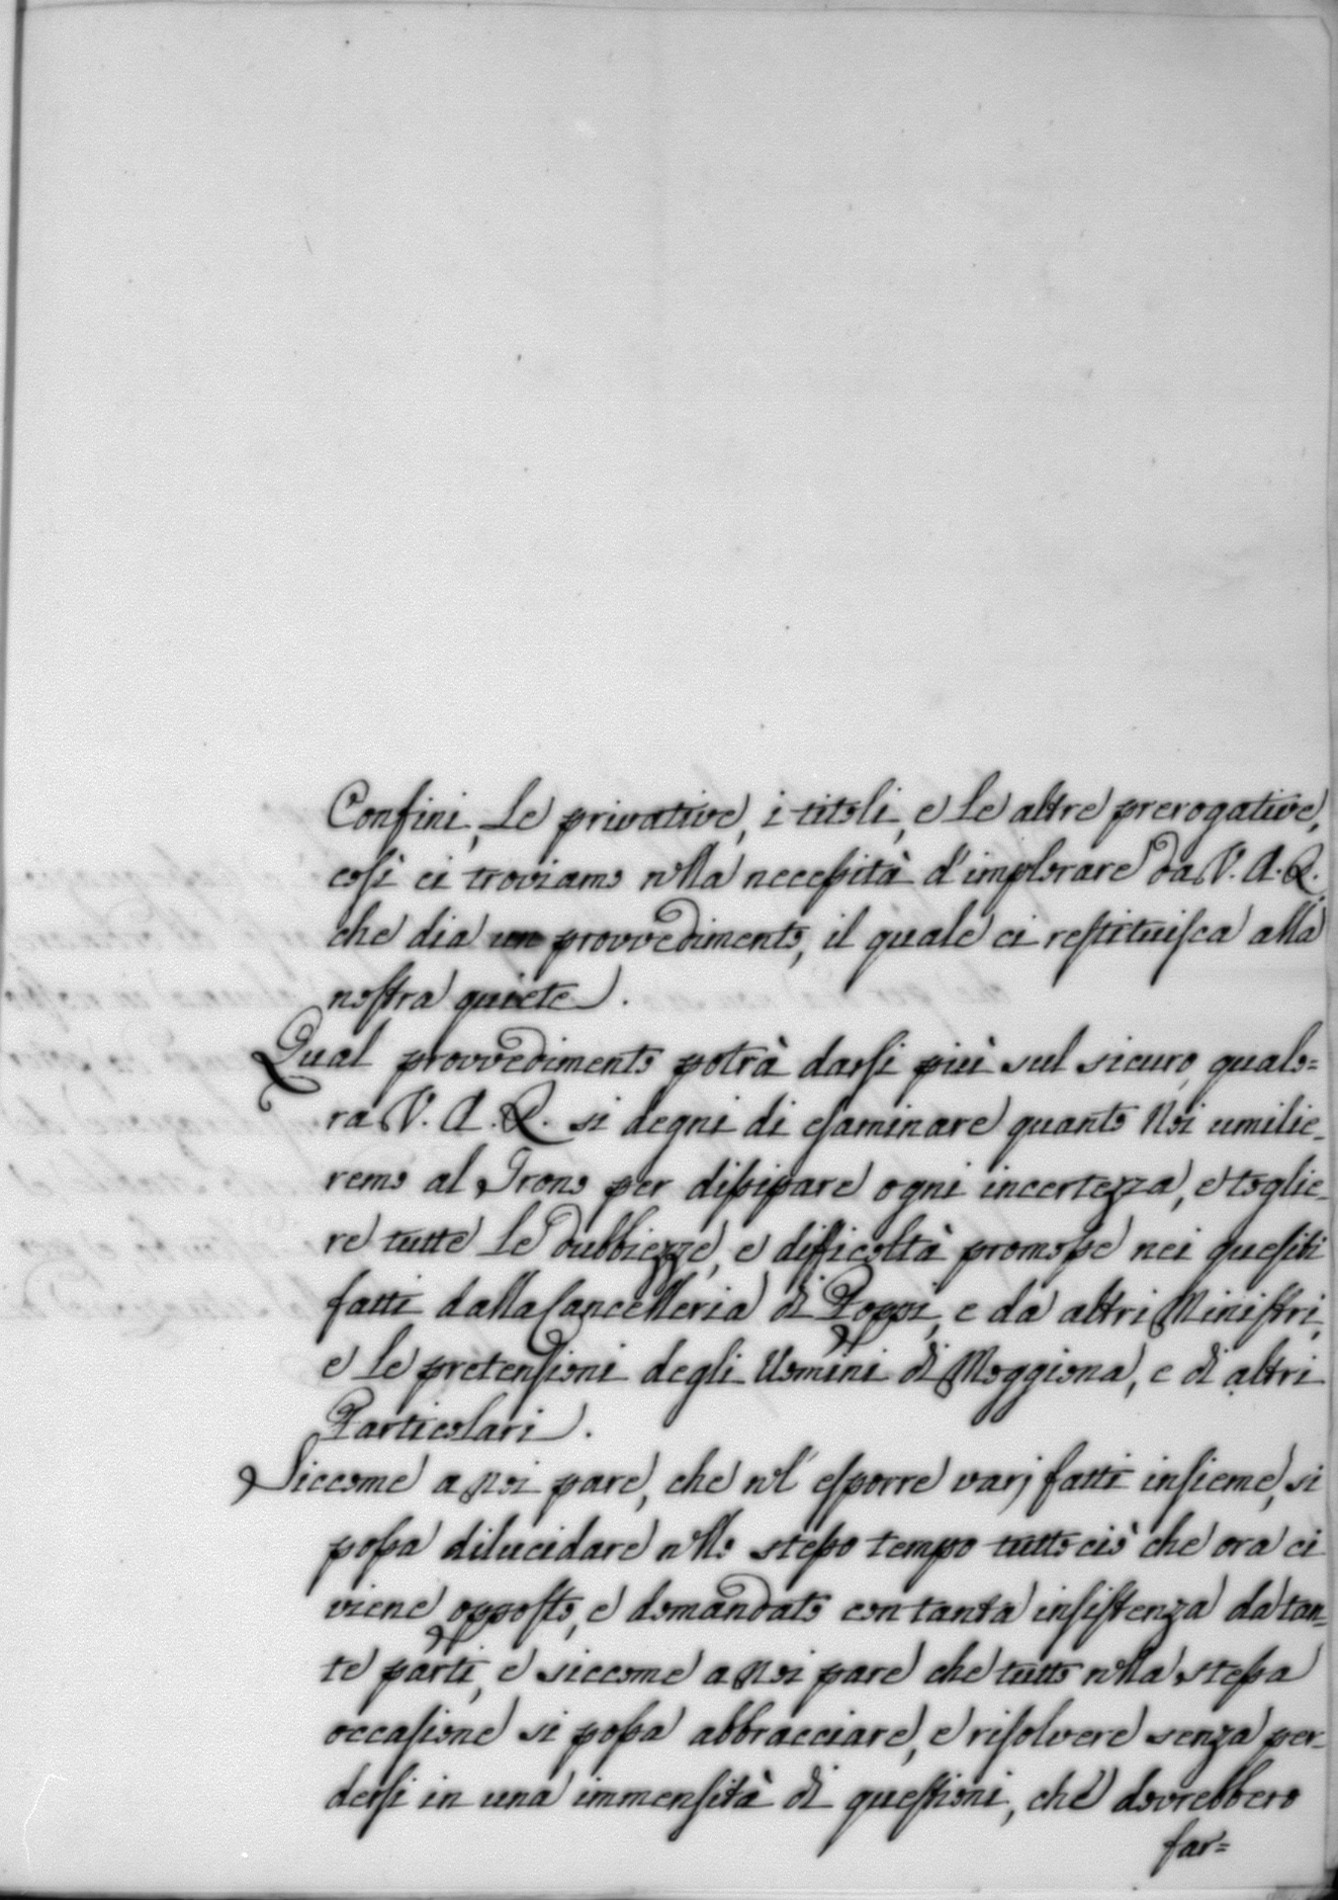 Confini, le privative, i titoli, e le altre prerogative,
così ci troviamo nella necessità d'implorare da V. A. R.
che dia un provvedimento, il quale ci restituisca alla
nostra quiete.
Qual provvedimento potrà darsi più sul sicuro, qualo=
ra V. A. R. si degni di esaminare quanto Noi umilie_
remo al Trono per dissipare ogni incertezza, e toglie_
re tutte le dubbiezze, e difficoltà promosse nei quesiti
fatti dalla Cancelleria di Poppi, e da altri Ministri,
e le pretensioni degli Uomini di Moggiona, e di altri
Particolari.
Siccome a Noi pare, che nel esporre varj fatti insieme, si
possa dilucidare nello stesso tempo tutto ciò che ora ci
viene opposto, e domandato con tanta insistenza da tan_
te parti, e siccome a Noi pare che tutto nella stessa
occasione si possa abbracciare, e risolvere senza per_
dersi in una immensità di questioni, che dovrebbero
far=